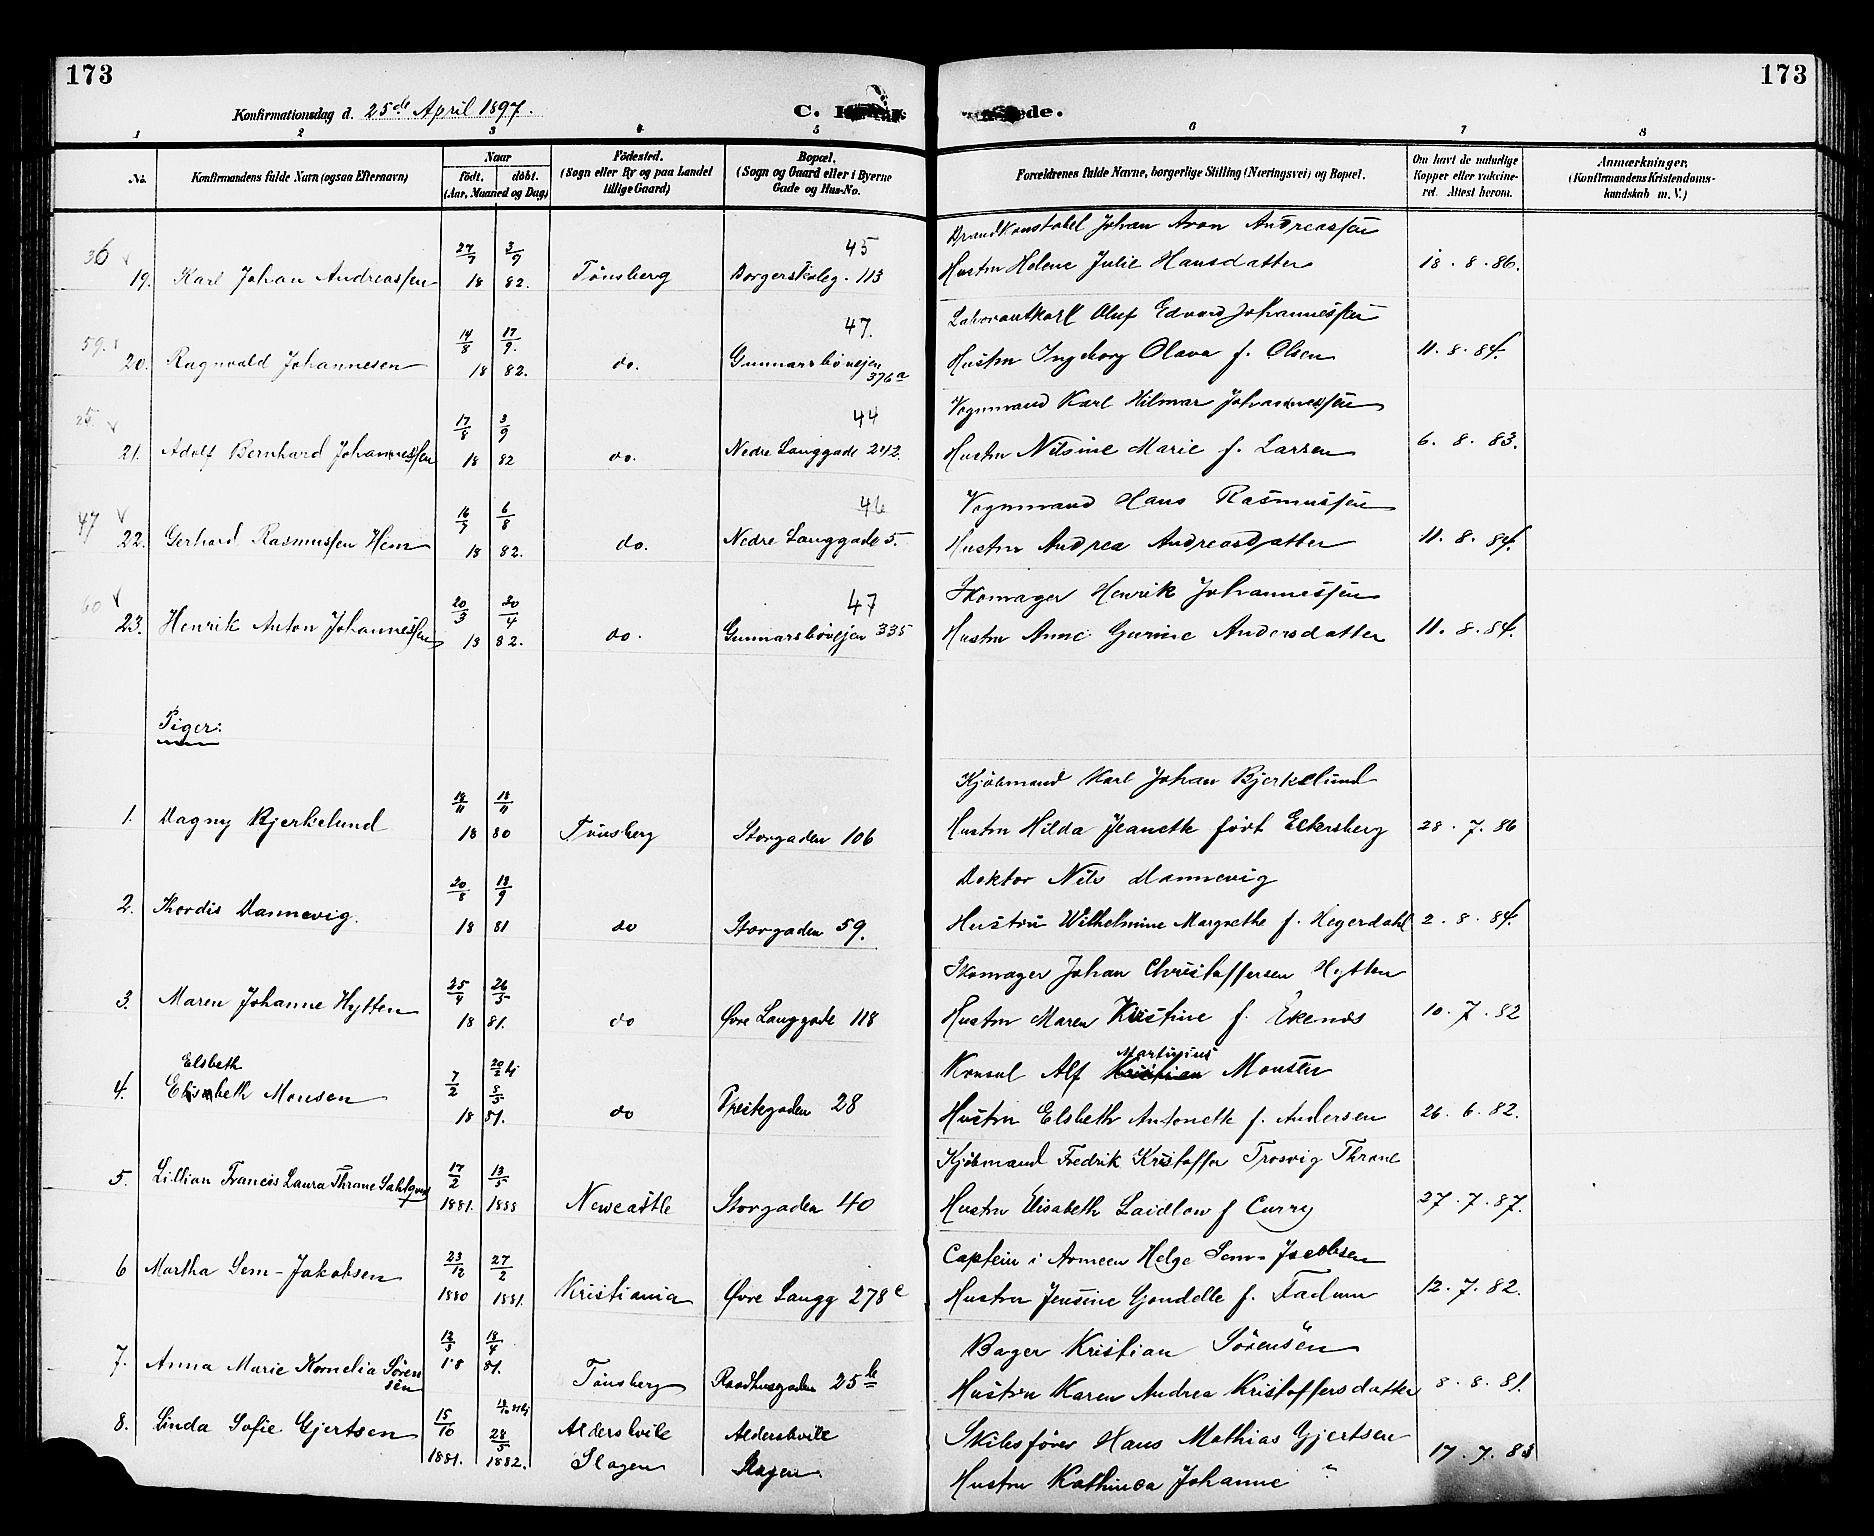 173
173
Konfirmationsdag d. 25de April 1897.
C.
de.
1 2 3 4 5 6 7 8
No.
Konfirmandens fulde Navn (ogsaa Efternavn)
Naar
født, døbt.
(Aar, Maaned og Dag)
Fødested.
(Sogn eller By og paa Landet
tillige Gaard)
Bopæl.
(Sogn og Gaard eller i Byerne
Gade og Hus-No.
Forældrenes fulde Navne, borgerlige Stilling (Næringsvei) og Bopæl.
Om havt de naturlige
Kopper eller vaksine-
ret. Attest herom.
Anmærkninger,
(Konfirmandens Kristendoms-
kundskab m. V.)
36 27/7 3/9 45 Brandkonstabel Johan Aron Andreassen
19. Karl Johan Andreassen 18 82. Tønsberg Borgerskoleg. 113 Hustru Helene Julie Hansdatter 18. 8. 86.
59. 14/8 17/9. 47. Laborantkarl Oluf Edvard Johannessen
20. Ragnvald Johannesen 18 82. do. Gunnarsbøvejen 376a Hustru Ingeborg Olava f. Olsen 11. 8. 84.
25 17/8 3/9 44 Vognmand Karl Hilmar Johannessen
21. Adolf Bernhard Johannessen 18 82 do. Nedre Langgade 242. Hustru Nilsine Marie f. Larsen 6. 8. 83.
47 16/7 6/8 46 Vognmand Hans Rasmussen
22. Gerhard Rasmussen Hem 18 82. do. Nedre Langgade 5. Hustru Andrea Andreasdatter 11. 8. 84.
60 20/3 20/4 47 Skomager Henrik Johannessen
23. Henrik Anton Johannessen 18 82. do. Gunnarsbøvejen 335 Hustru Anne Gurine Andersdatter 11. 8. 84.
Piger:
18/11 Kjøbmand Karl Johan Bjerkelund
1. Dagny Bjerkelund 18 80 Tønsberg Storgaden 106 Hustru Hilda Jeanette født Eckersberg 28. 7. 86
20/8 18/9 Doktor Nils Dannevig
2. Thordis Dannevig. 18 81 do Storgaden 59. Hustru Wilhelmine Margrethe f. Hegerdahl 2. 8. 84.
25/4 26/5 Skomager Johan Christoffersen Hytten
3. Maren Johanne Hytten 18 81. do Øvre Langgade 118 Hustru Maren Kristine f. Ekenæs 10. 7. 82
Elsbeth 7/2 20/2 hj Konsul Alf Martinius Monsen
4. Elisabeth Monsen 18 81. do Prestegaden 28 Hustru Elsbeth Antonette f. Andersen 26. 6. 82.
17/2 13/5 Kjøbmand Fredrik Kristoffer Trosvig Thrane
5. Lillian Francis Laura Thrane Sahlqvist 1881. 1883 Newcastle Storgaden 40 Hustru Elisabeth Laidlow f Curry 27. 7. 87.
23/12 27/2 Captein i Armeen Helge Sem-Jacobsen
6 Martha Sem-Jakobsen 1880 1881. Kristiania Øvre Langg 278c Hustru Jensine Gondelle f. Fadum 12. 7. 82.
12/3 18/4 Bager Kristian Sørensen
7. Anna Marie Kornelia Sørensen 18 81. Tønsberg Raadhusgaden 25b Hustru Karen Andrea Kristoffersdatter 8. 8. 81.
8. Linda Sofie Gjertsen 15/10 28/5 Aldershvile Aldershvile Skibsfører Hans Mathias Gjertsen
1881. 1882. Slagen Slagen Hustru Kathinca Johanne " 17. 7. 83